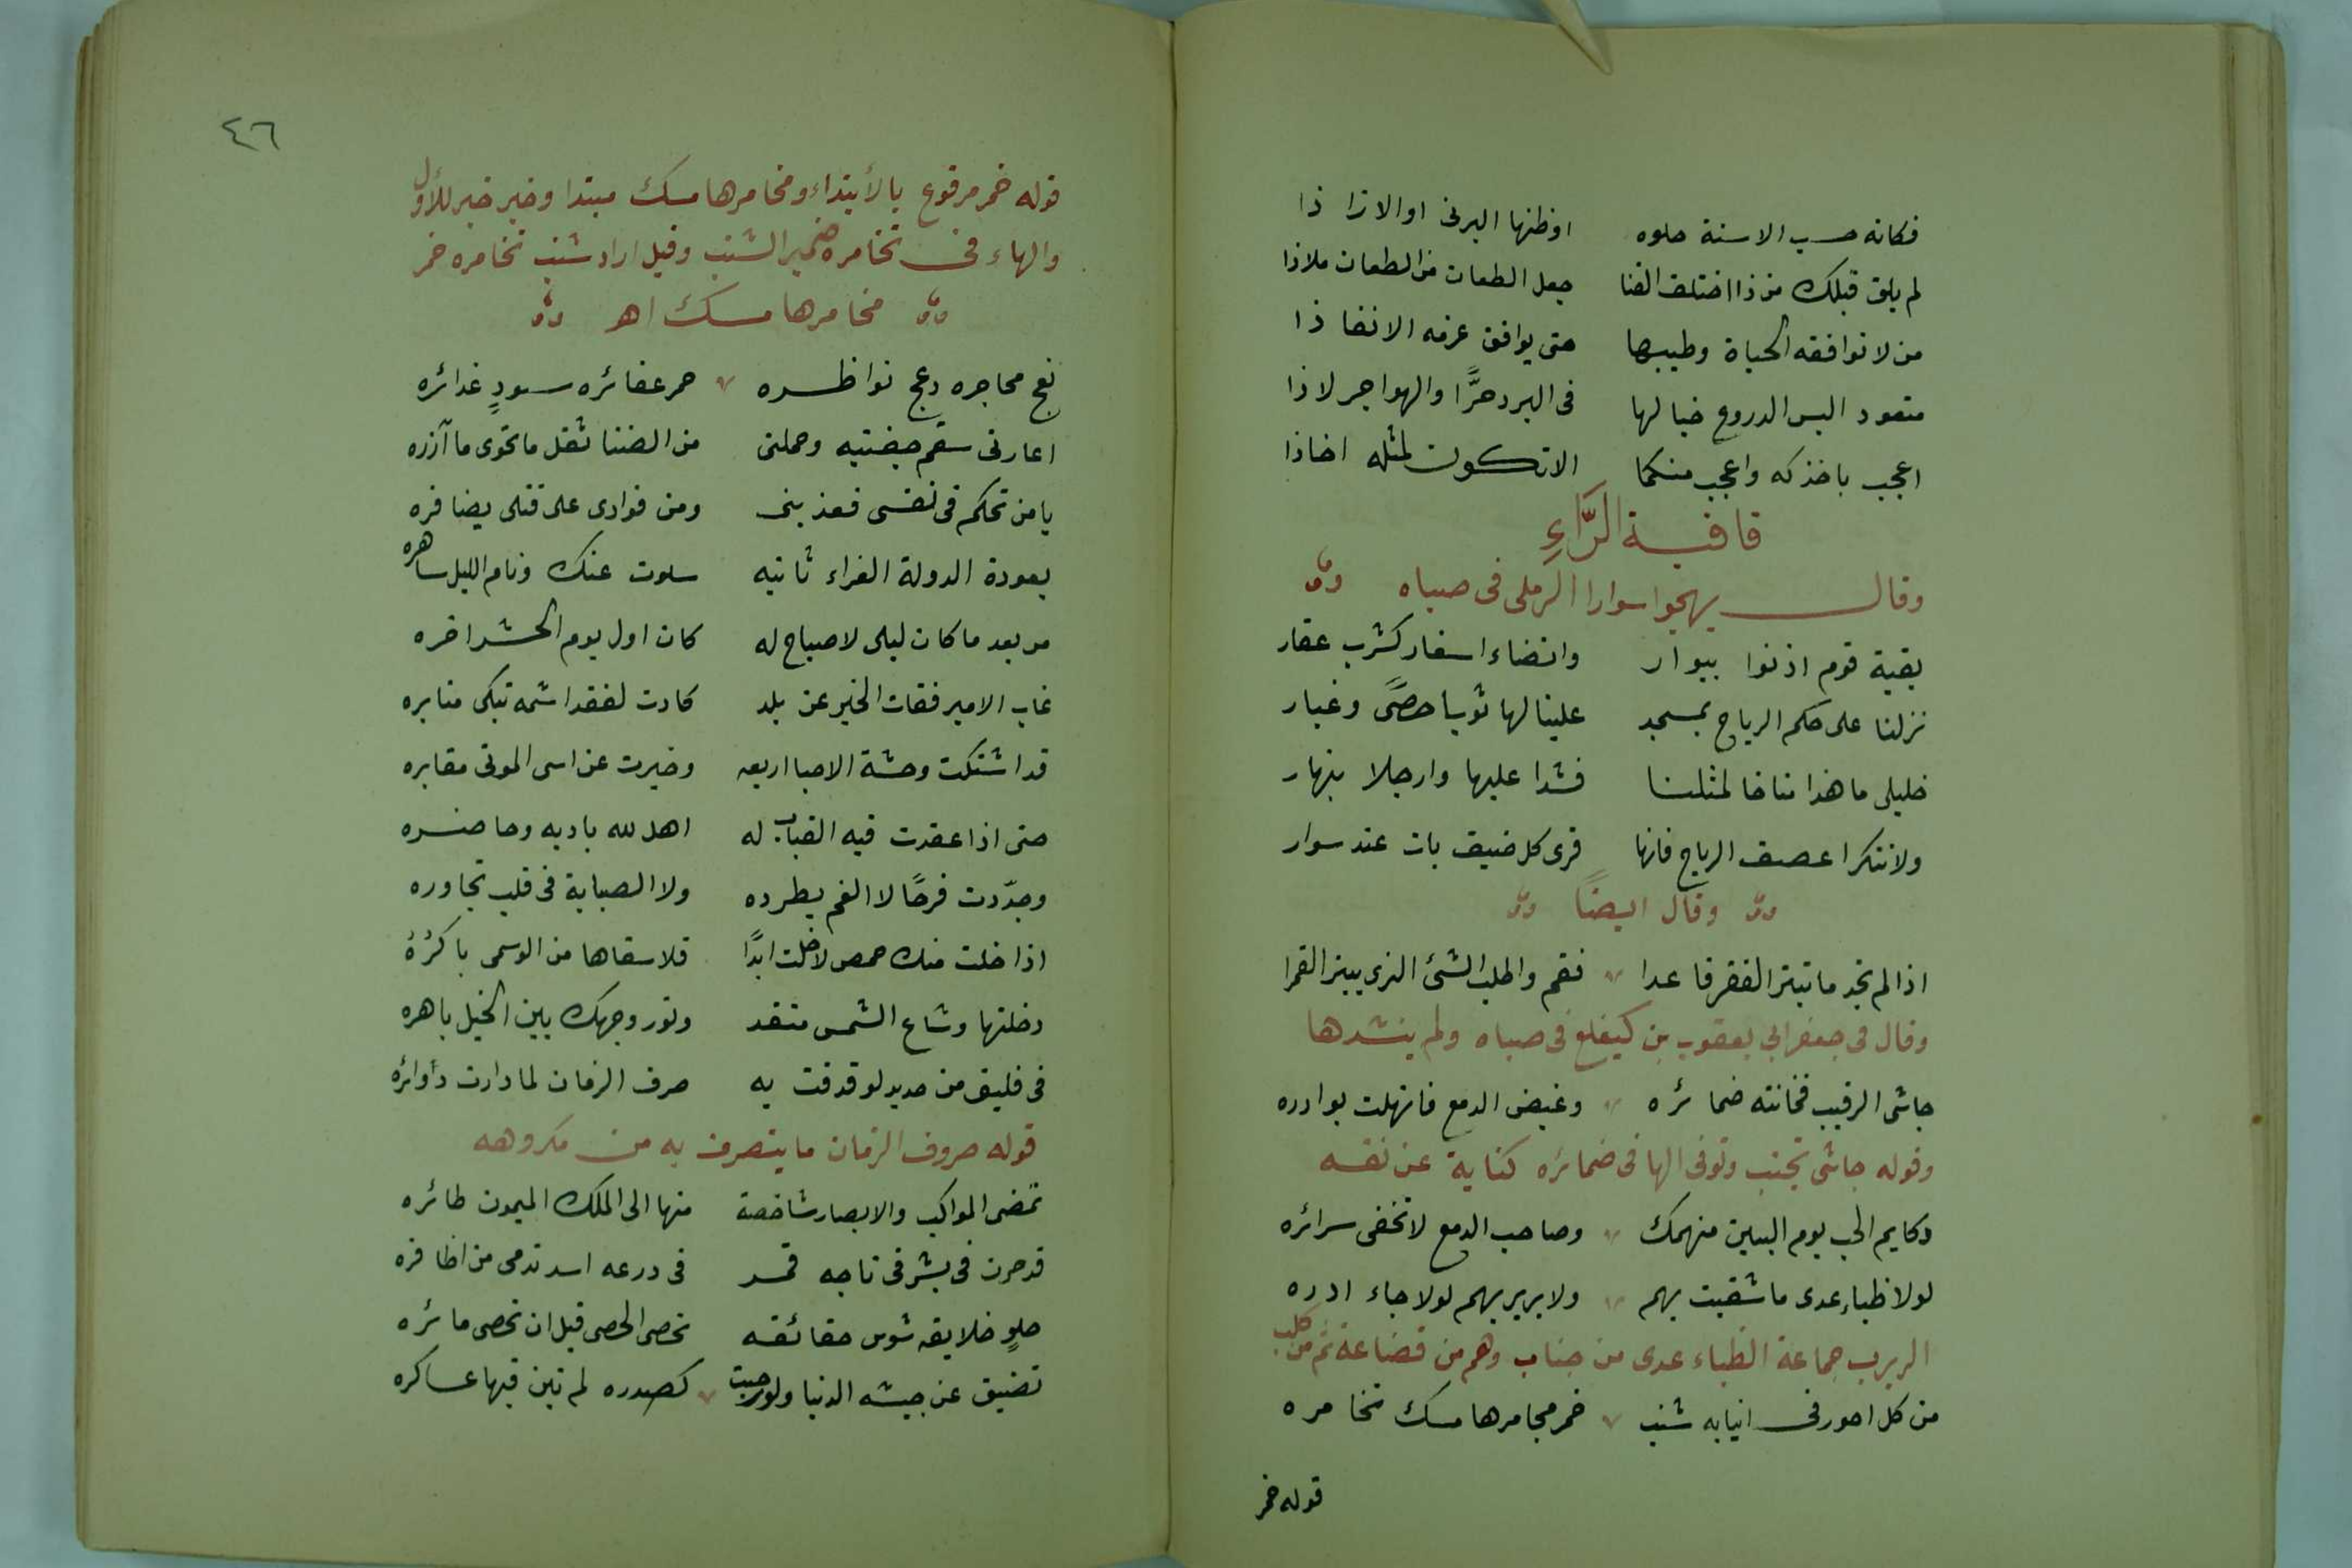 فكانه حسب الاسنة حلوه اوظنها البرنى اوالازا ذا
لم يلق قبلك من ذا اختلف القنا جعل الطعان من الطعان ملاذا
من لا توافقه الحياة وطيبها حتى يوافق عزمه الانفا ذا
متعود البس الدروع خبالها فى البرد خزًّا والهواجر لاذا
اعجب باخذكه واعجب منكما الاتكون لمثله اخاذا
قافيــة الرَّاءِ
وقال يهجوا سوارا الرملى فى صباه
بقية قوم اذنوا ببوار وانضاء اسفار كشرب عقار
نزلنا على حكم الرياح بمسجد علينا لها ثوبا حصًى وغبار
خليلى ما هذا مناخا لمثلنا فشدا عليها وارحلا بنهار
ولاتنكرا عصف الرياح فانها قرى كل ضيف بات عند سوار
وقال ايضًا
اذا لم تجد ما تبتر الفقر قاعدا فقم واطلب الشئ الذى يبتر القمرا
وقال فى جعفر ابي يعقوب بن كيغلغ فى صباه ولم ينشدها
حاشى الرقيب فخانته ضمائره وغيض الدمع فانهلت بوادره
وقوله حاشى تجنب وتوفى الها فى ضمائره كناية عن نفسه
وكايم الحب يوم البين منهمك وصاحب الدمع لا تخفى سرائره
لولا ظباء عدى ما شقيت بهم ولا بربربهم لولا جاء ادره
الربرب جماعة الظباء عدى من جناب وهم من قضاعة ثم من كلب
من كل احور فى انيابه شنب خمر مجامرها مسك تخامره
قوله خمر
٤٦
قوله خمر مرفوع بالأبتداء ومخامرها مسك مبتدا وخبر خبر للأول
والهاء فى تخامره ضمير الشنب وقيل اراد شنب تخامره خمر
مخامرها مسك اهـ
نعج محاجره دعج نواظره حمر عفائره سودٍ غدائره
اعارنى سقم جفنيه وحملنى من الضنا ثقل ما تحوى مآزره
يا من تحكم فى نفسى فعذبنى ومن فوادى على قتلى يضافره
بعودة الدولة الغراء ثانيه سلوت عنك ونام الليل ساهره
من بعد ما كان ليلى لا صباح له كان اول يوم الحشر اخره
غاب الامير فغاب الخير عن بلد كادت لفقد اسمه تبكى منابره
قد اشتكت وحشة الاحيا اربعه وخبرت عن اسى الموتى مقابره
حتى اذا عقدت فيه القباب له اهل لله باديه وحاضره
وجدّدت فرحًا لا الغم يطرده ولا الصبابة فى قلب تجاوره
اذا خلت منك حمص لا خلت ابدًا فلا سقاها من الوسمى باكرُهُ
دخلتها وشاع الشمس متقد ونور وجهك بين الخيل باهره
فى فليق من حديد لو قدفت به صرف الزمان لما دارت دأوائره
قوله صروف الزمان ما يتصرف به من مكروهه
تمضى المواكب والابصار شاخصة منها الى الملك الميمون طائره
قد حرن فى بشر فى تاجه قمر فى درعه اسد تدمى من اظافره
حلوٍ خلايقه شوس حقائقه تحصى الحصى قبل ان تحصى مائره
تضيق عن جيشه الدنيا ولو رحبت كصدره لم تبن فيها عساكره